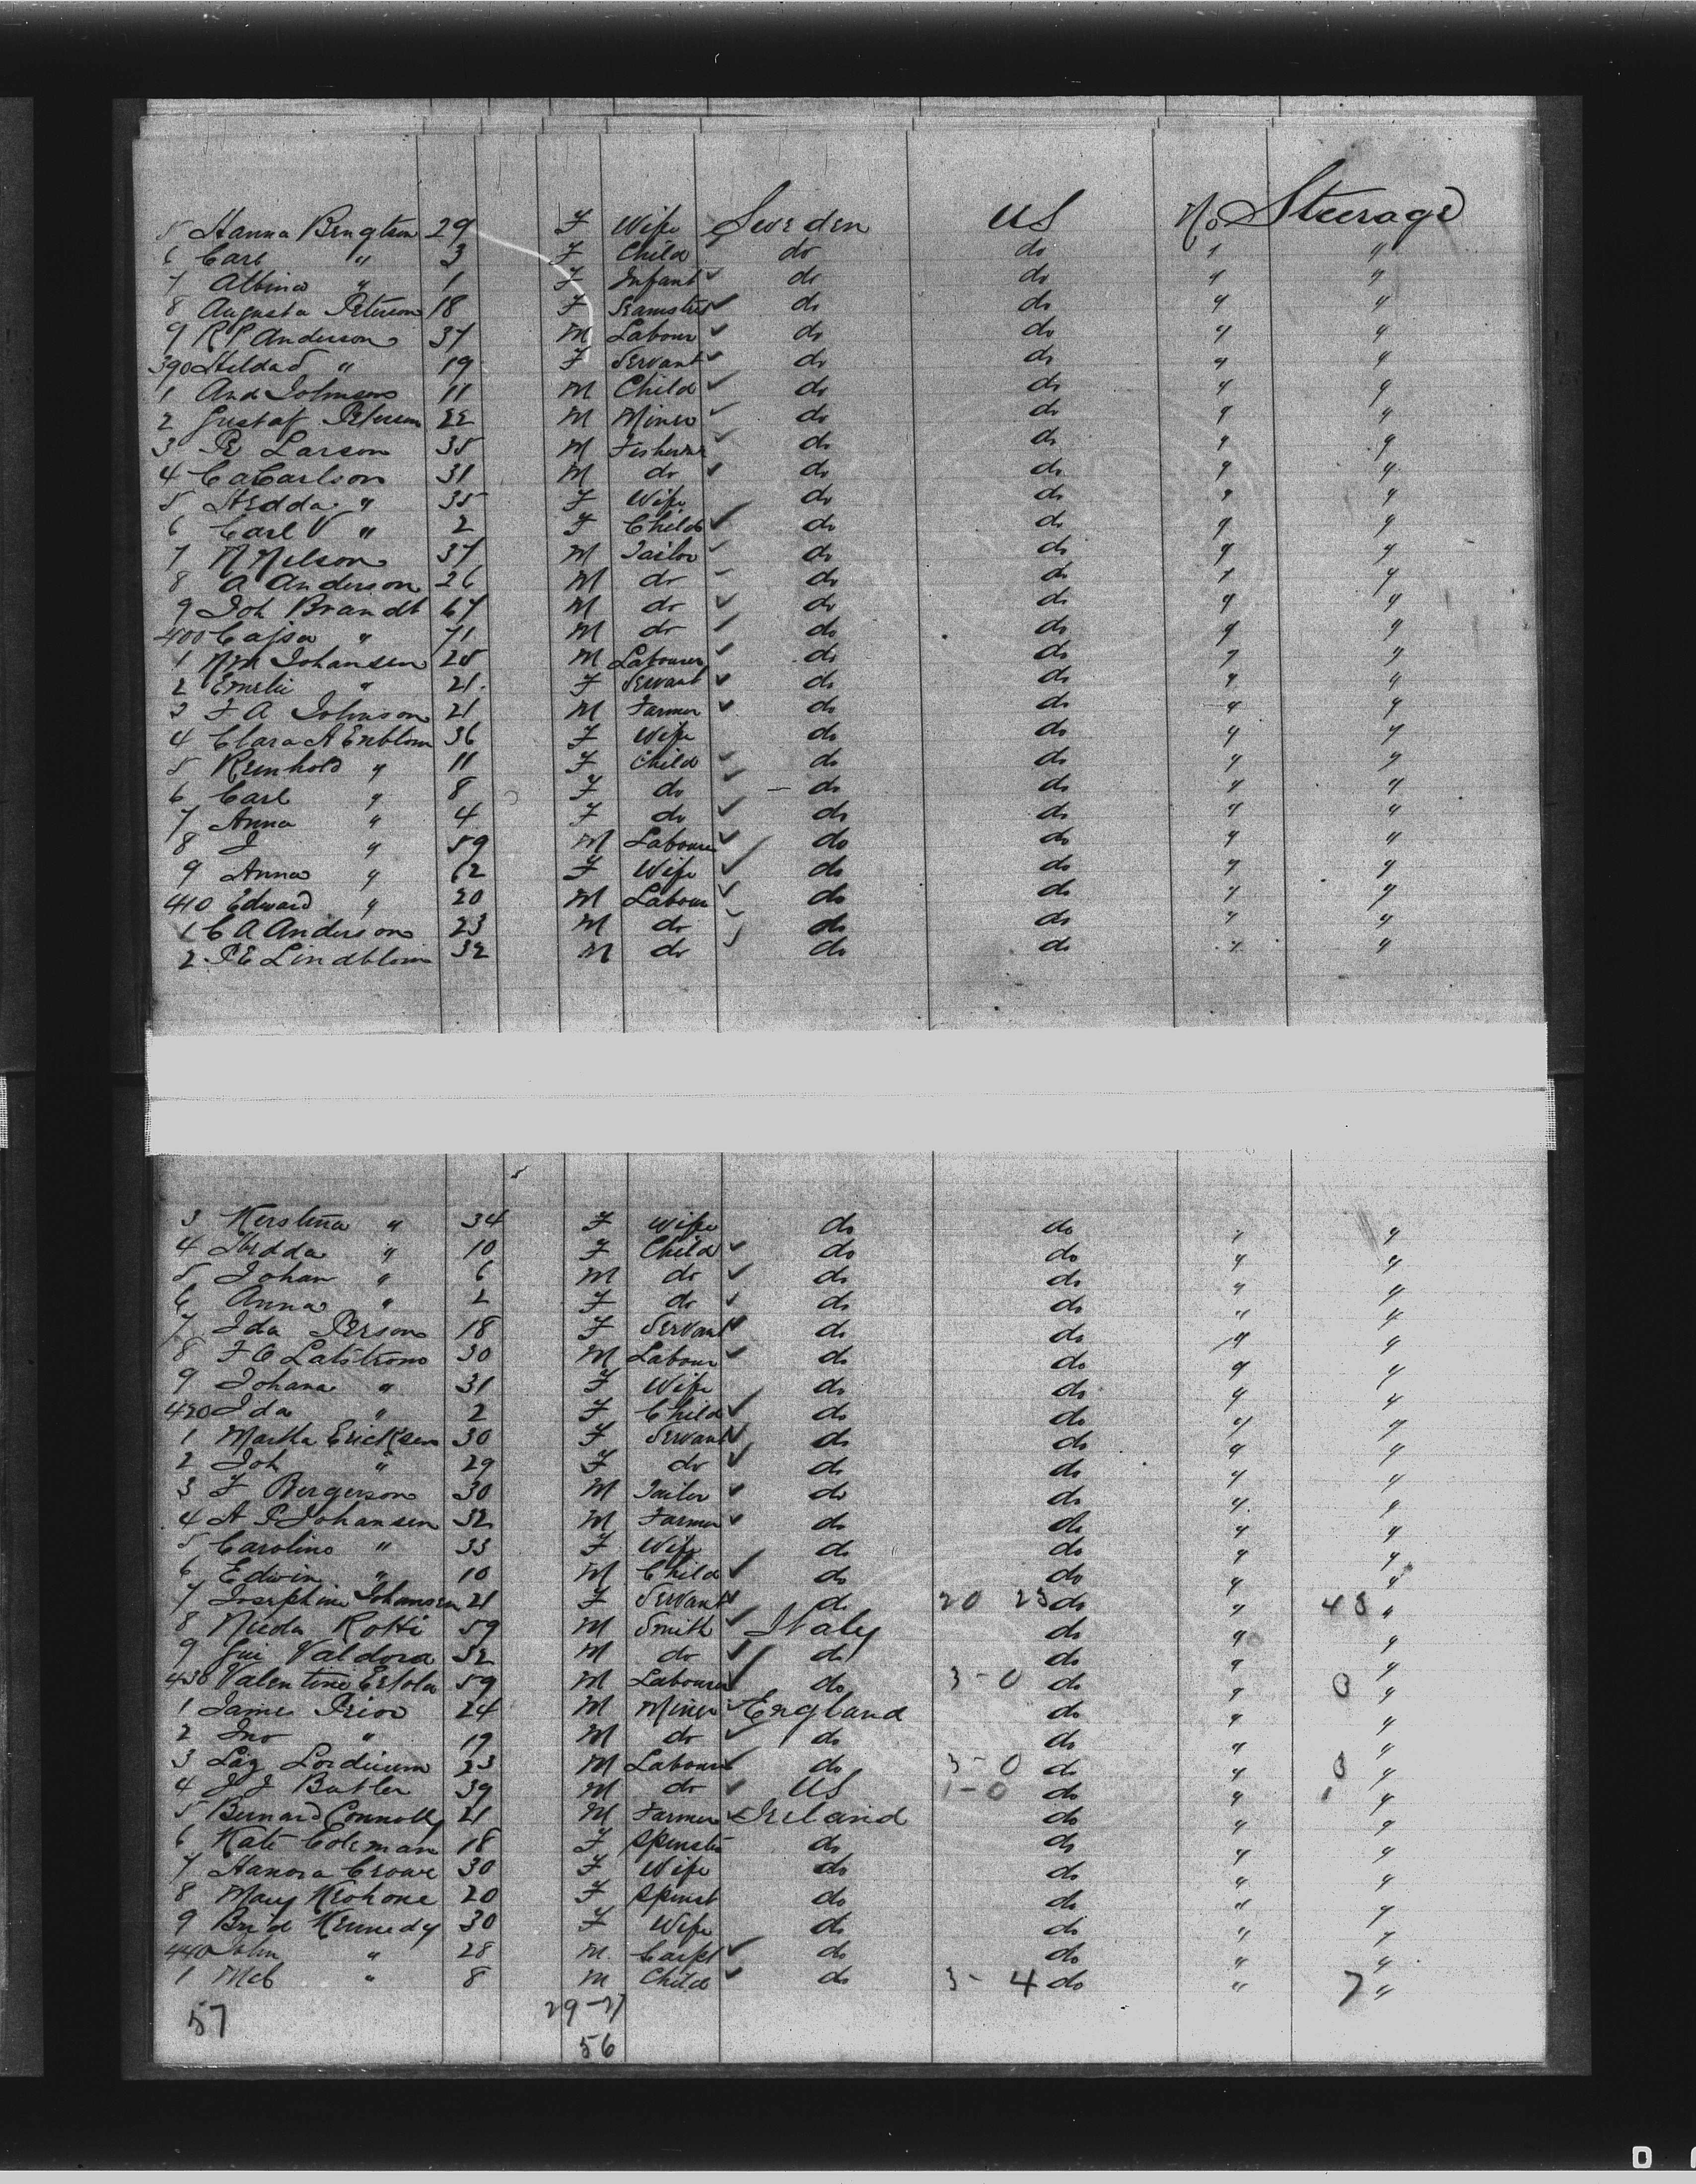 5 Hanna Bengtson 29 F Wife Sweden US No Steerage
6 Carl " 3 F Child do do " "
7 Albina " 1 F Infant ✓ do do " "
8 Augusta Peterson 18 F Seamstres ✓ do do " "
9 R P Anderson 37 M Labour ✓ do do " "
390 Hilda S " 19 F Servant ✓ do do " "
1 And Johnson 11 M Child ✓ do do " "
2 Gustaf Peterson 22 M Miner ✓ do do " "
3 Larson 35 M Fisherm ✓ do do " "
4 C A Carlson 31 M do ✓ do do " "
5 Hedda " 35 F Wife do do " "
6 Carl V " 2 F Child ✓ do do " "
7 N Nelson 37 M Tailor ✓ do do " "
8 A Anderson 26 M do ✓ do do " "
9 Joh Brandt 67 M do ✓ do do " "
400 Cajsa " 71 M do ✓ do do " "
1 Johansen 25 M Labourer ✓ do do " "
2 Emelie " 21 F Servant ✓ do do " "
3 F A Johnson 21 M Farmer ✓ do do " "
4 Clara A Enblom 36 F Wife do do " "
5 Reinhold " 11 F Child ✓ do do " "
6 Carl " 8 F do ✓ do do " "
7 Anna " 4 F do ✓ do do " "
8 J " 59 M Labourer ✓ do do " "
9 Anna " 62 F Wife ✓ do do " "
410 Edward " 20 M Labour ✓ do do " "
1 C A Anderson 23 M do ✓ do do " "
2 P E Lindblom 32 M do ✓ do do " "
3 Kerstina " 34 F Wife do do " "
4 Hedda " 10 F Child ✓ do do " "
5 Johan " 6 M do ✓ do do " "
6 Anna " 2 F do ✓ do do " "
7 Ida Person 18 F Servant ✓ do do " "
8 F O Latstrom 30 M Labour ✓ do do " "
9 Johana " 31 F Wife do do " "
420 Ida " 2 F Child ✓ do do " "
1 Martha Ericksen 30 F Servant ✓ do do " "
2 Joh " 29 F do ✓ do do " "
3 F Bergerson 30 M Tailor ✓ do do " "
4 A P Johansen 32 M Farmer ✓ do do " "
5 Caroline " 33 F Wife do do " "
6 Edwin " 10 M Child ✓ do do " "
7 Josephine Johansen 21 F Servant ✓ do 20 23 do " 43 "
8 Rotti 59 M Smith ✓ Italy do " "
9 Valdora 32 M do ✓ do do " "
430 Valentine 59 M Labourer ✓ do 3-0 do " 3 "
1 James Prior 24 M Miner ✓ England do " "
2 Jno " 19 M do ✓ do do " "
3 23 M Labour ✓ do 3-0 do " 3 "
4 J J Butler 39 M do ✓ US 1-0 do " 1 "
5 Bernard Connolly 21 M Farmer ✓ Ireland do " "
6 Kate Coleman 18 F Spinster do do " "
7 Hanora Crowe 30 F Wife do do " "
8 Mary Keohone 20 F Spinst do do " "
9 Brid Kennedy 30 F Wife do do " "
440 John " 28 M Carpt ✓ do do " "
1 " 8 M Child ✓ do 3-4 do " 7 "
57 29-27
56